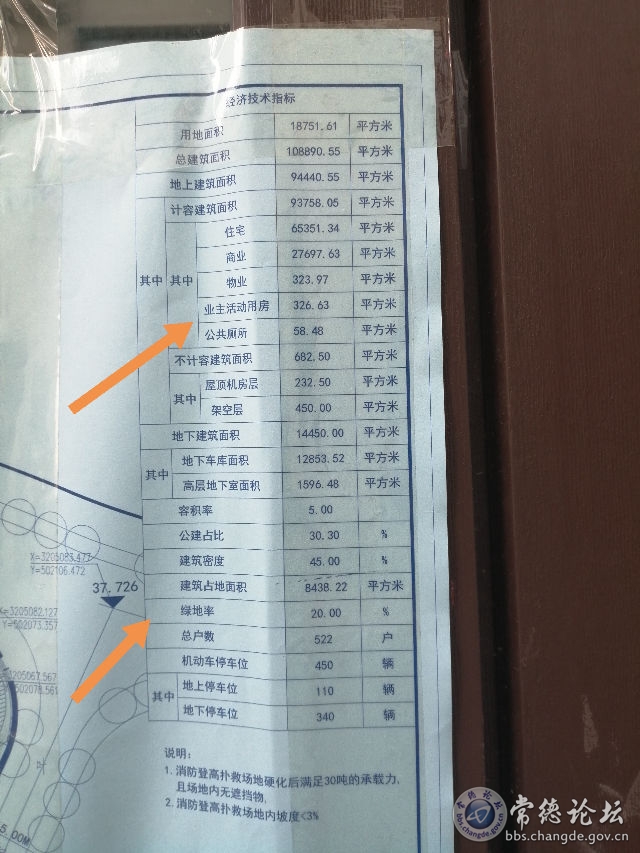 经济技术指标
用地面积 18751.61 平方米
总建筑面积 108890.55 平方米
地上建筑面积 94440.55 平方米
计容建筑面积 93758.05 平方米
住宅 65351.34 平方米
商业 27697.63 平方米
其中 其中 物业 323.97 平方米
业主活动用房 326.63 平方米
公共厕所 58.48 平方米
不计容建筑面积 682.50 平方米
其中 屋顶机房层 232.50 平方米
架空层 450.00 平方米
地下建筑面积 14450.00 平方米
其中 地下车库面积 12853.52 平方米
高层地下室面积 1596.48 平方米
容积率 5.00
公建占比 30.30 %
建筑密度 45.00 %
建筑占地面积 8438.22 平方米
绿地率 20.00 %
总户数 522 户
机动车停车位 450 辆
其中 地上停车位 110 辆
地下停车位 340 辆
说明:
1. 消防登高扑救场地硬化后满足30吨的承载力,
且场地内无遮挡物,
2. 消防登高扑救场地内坡度<3%
X=3205083.477
Y=502106.472
37.726
X=3205082.127
Y=502073.357
X=3205067.567
5.00M
常德论坛
bbs.changde.gov.cn